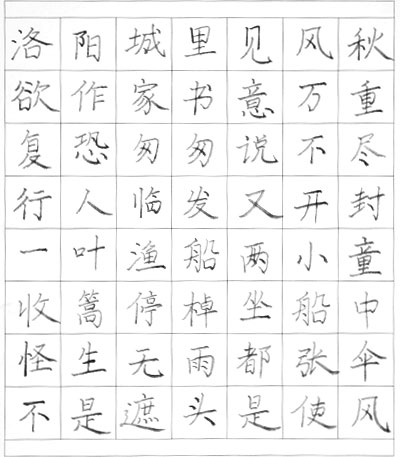 洛阳城里见风秋
欲作家书意万重
复恐匆匆说不尽
行人临发又开封
一叶渔船两小童
收篙停棹坐船中
怪生无雨都张伞
不是遮头是使风